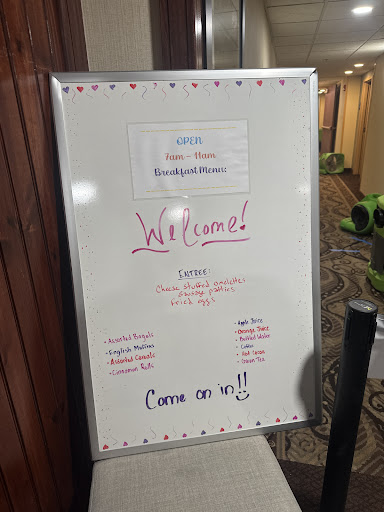 OPEN
7am - 11am
Breakfast Menu:
Welcome!
ENTREE:
Cheese stuffed omelettes
Sausage patties
Fried eggs
• Assorted Bagels
• English Muffins
• Assorted Cereals
• Cinnamon Rolls
• Apple Juice
• Orange Juice
• Bottled Water
• Coffee
• Hot Cocoa
• Green Tea
Come on in!!